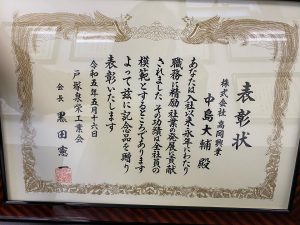 表彰状
株式会社 高岡興業
中島大輔殿
あなたは入社以来永年にわたり
職務に精励社業の発展に貢献
されましたその功績は全社員の
模範とするところであります
よって茲に記念品を贈り
表彰いたします
令和五年五月十六日
戸塚泉栄工業会
会長 黒田憲一